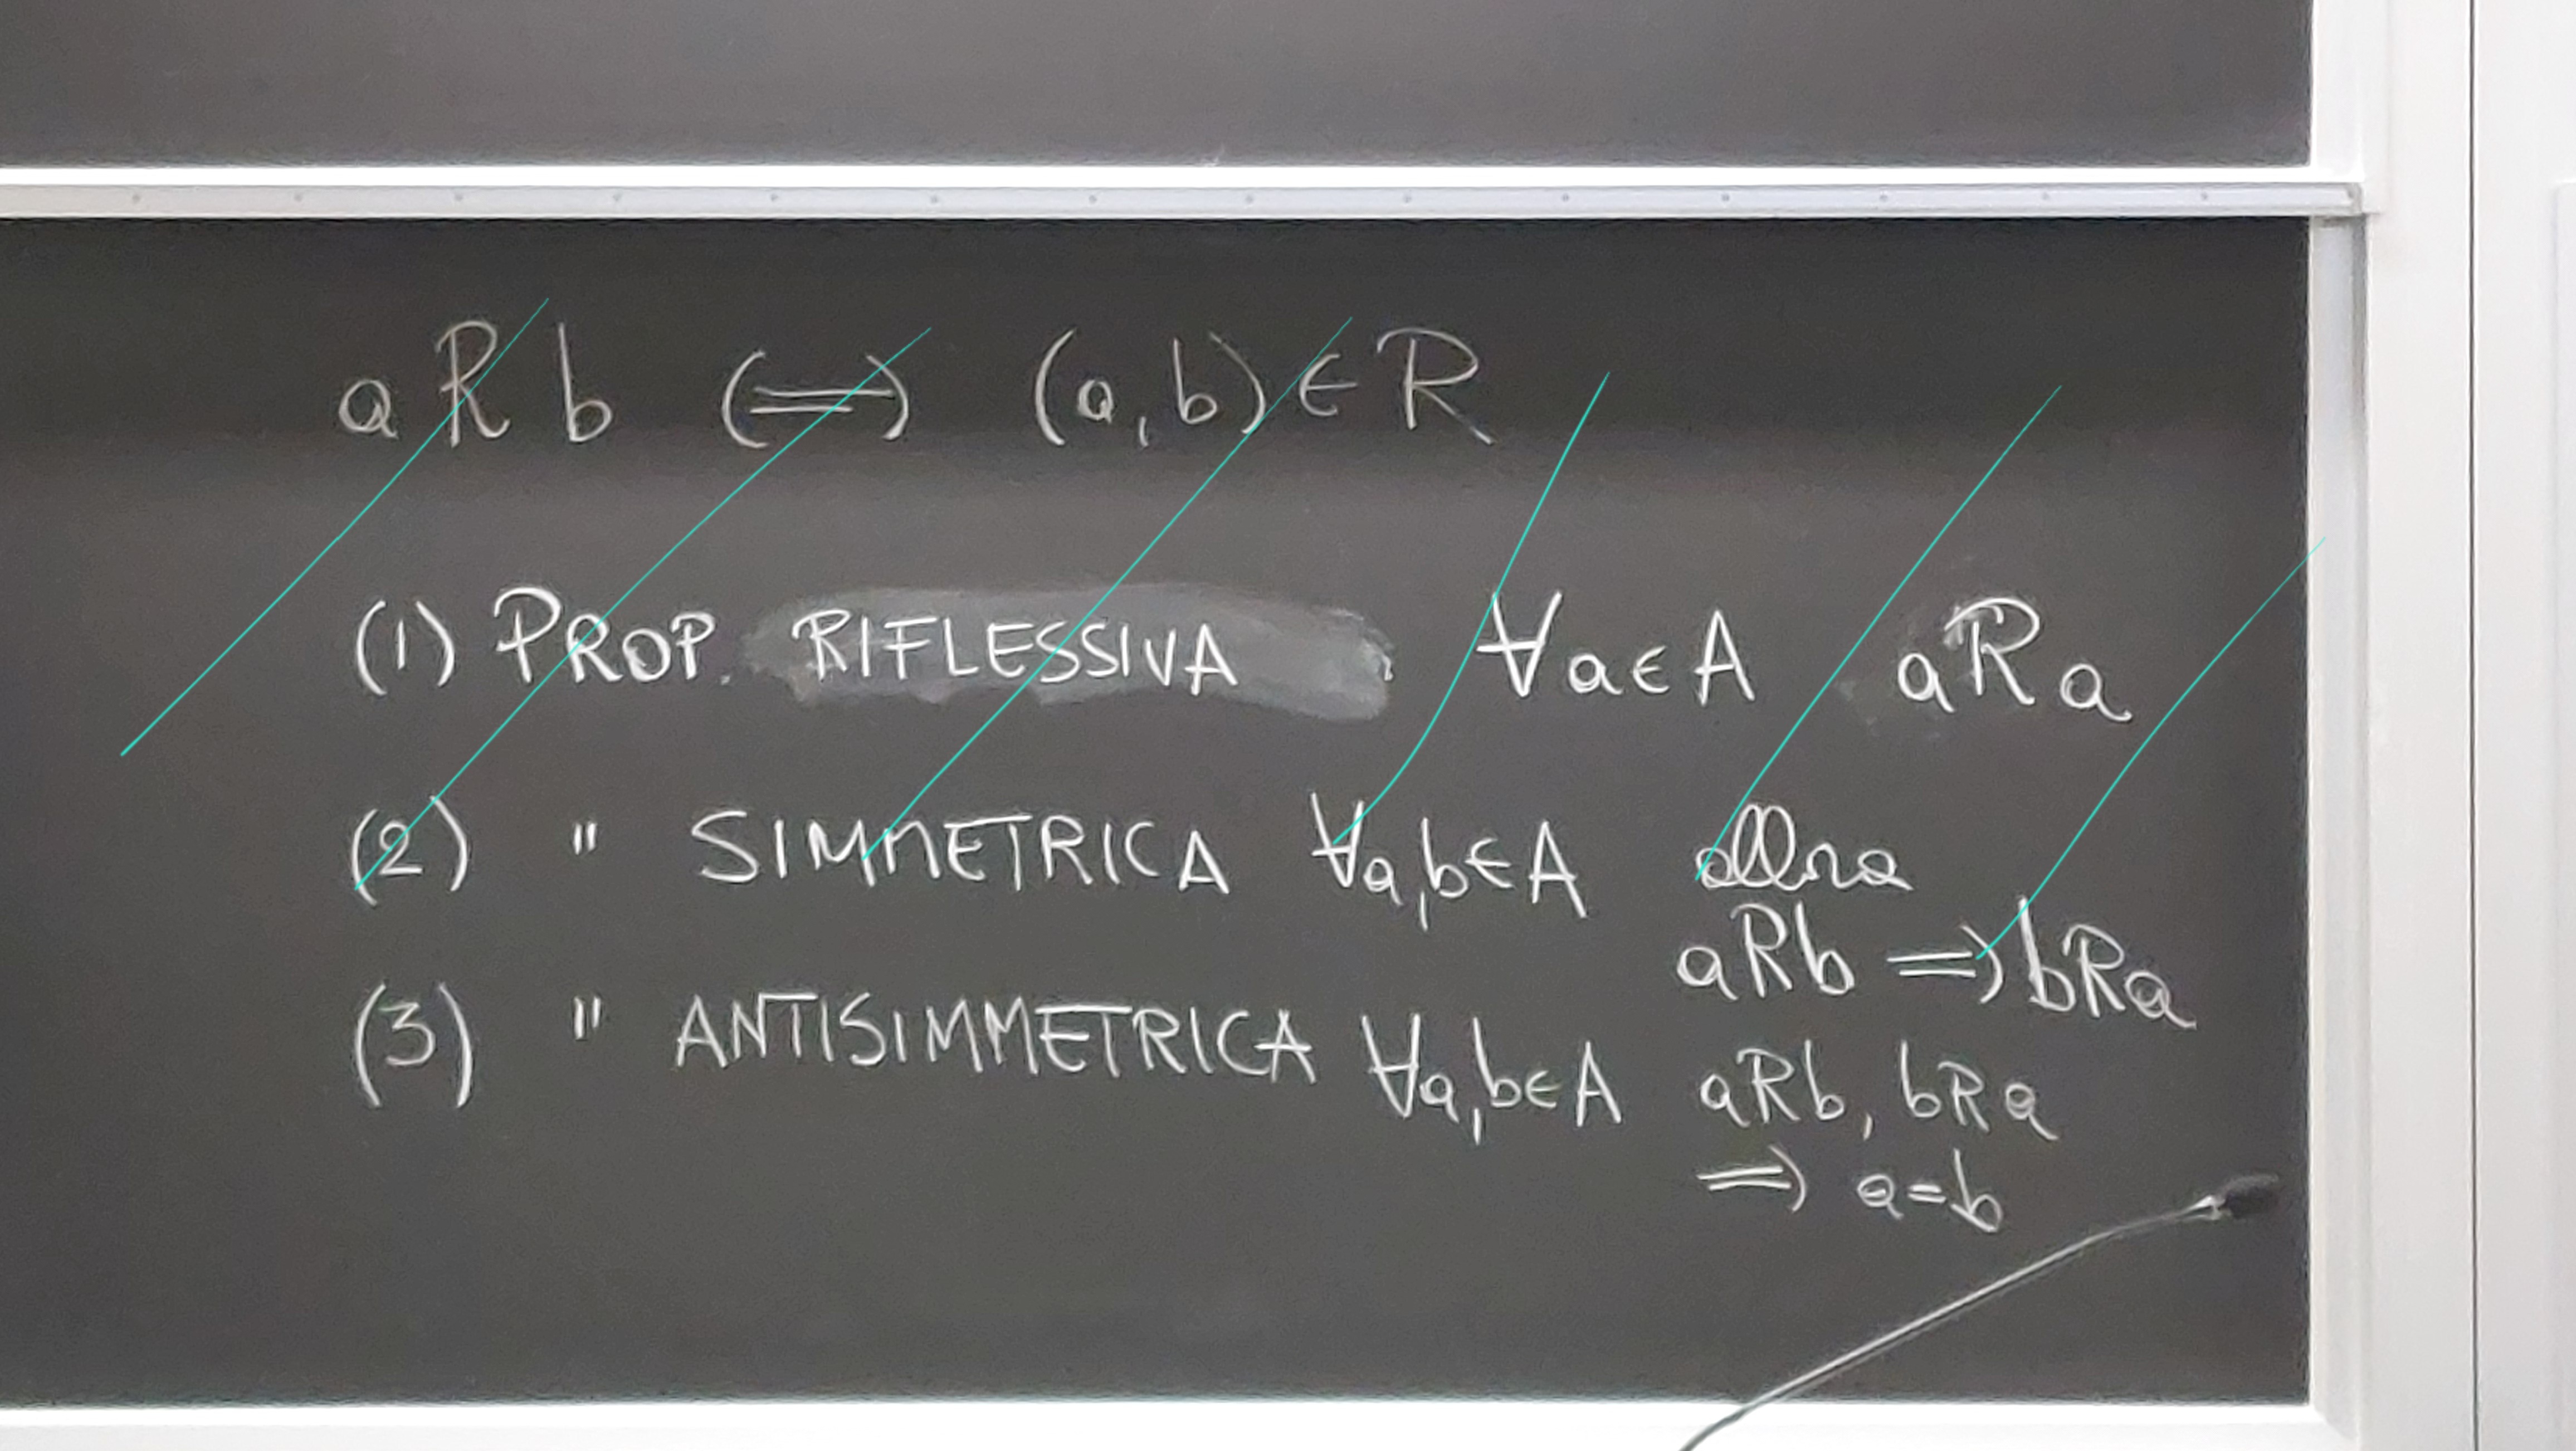 aRb ⇐⇒ (a,b)∈R
(1) PROP. RIFLESSIVA ∀a∈A aRa
(2) " SIMMETRICA ∀a,b∈A allora
aRb ⇒ bRa
(3) " ANTISIMMETRICA ∀a,b∈A aRb, bRa
⇒ a=b